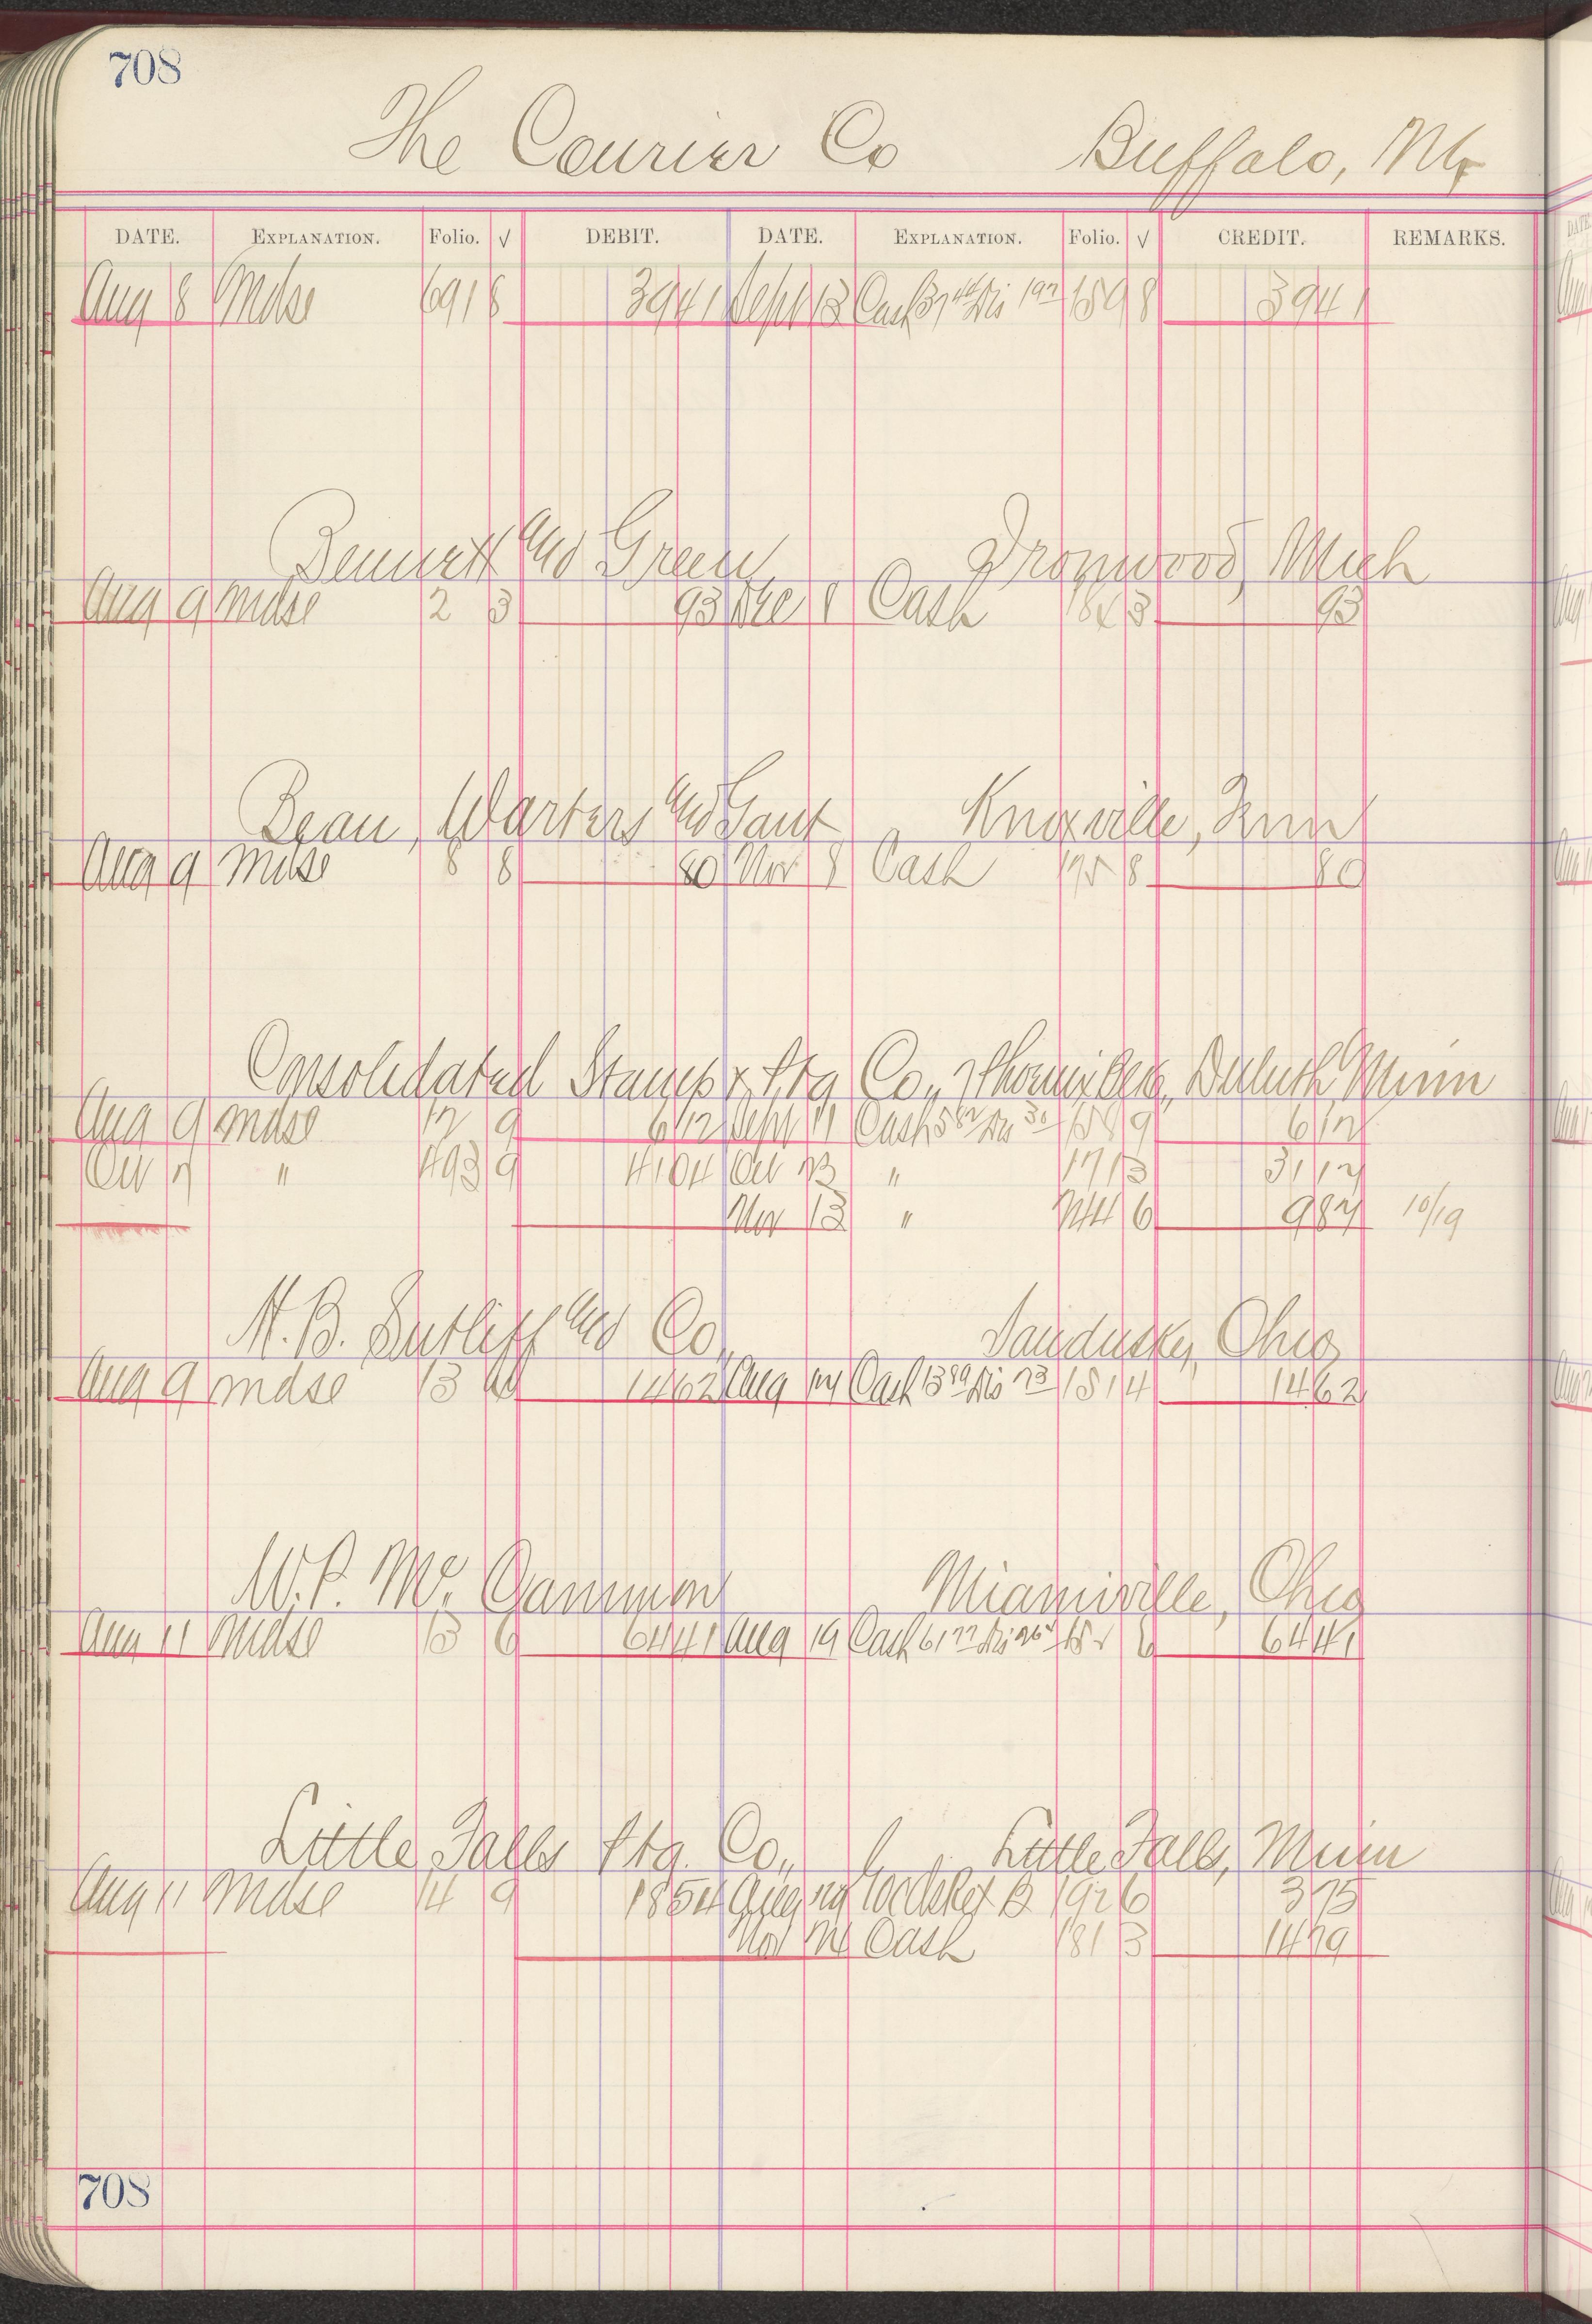 708
The Courier Co Buffalo, NY
DATE. EXPLANATION. Folio. √ DEBIT. DATE. EXPLANATION. Folio. √ CREDIT. REMARKS.
Aug 8 Mdse 691 8 3941 Sept 13 Cash Dis 197 1598 3941
Bennett and Green Ironwood, Mich
Aug 9 mdse 2 3 93 Dec 1 Cash 3 93
Bean, Warters and Gaut Knoxville, Tenn
Aug 9 Mdse 8 8 80 Nov 8 Cash 8 80
Consolidated Stamp & Ptg Co., Duluth Minn
Aug 9 mdse 12 9 612 Sept 11 Cash 9 612
Oct 7 " 493 9 4104 Oct 13 " 171 3 3117
Nov 13 " 6 987 10/19
A. B. Sutliff and Co. Sandusky, Ohio
Aug 9 mdse 13 1462 Aug 14 Cash 13 89 Dis 73 151 4 1462
W. P. Mc. Gammon Miamiville, Ohio
Aug 11 Mdse 13 6 6441 Aug 19 Cash 6 6441
Little Falls Ptg. Co., Little Falls, Minn
Aug 11 Mdse 14 9 1854 192 6 375
Nov Cash 181 3 1479
708